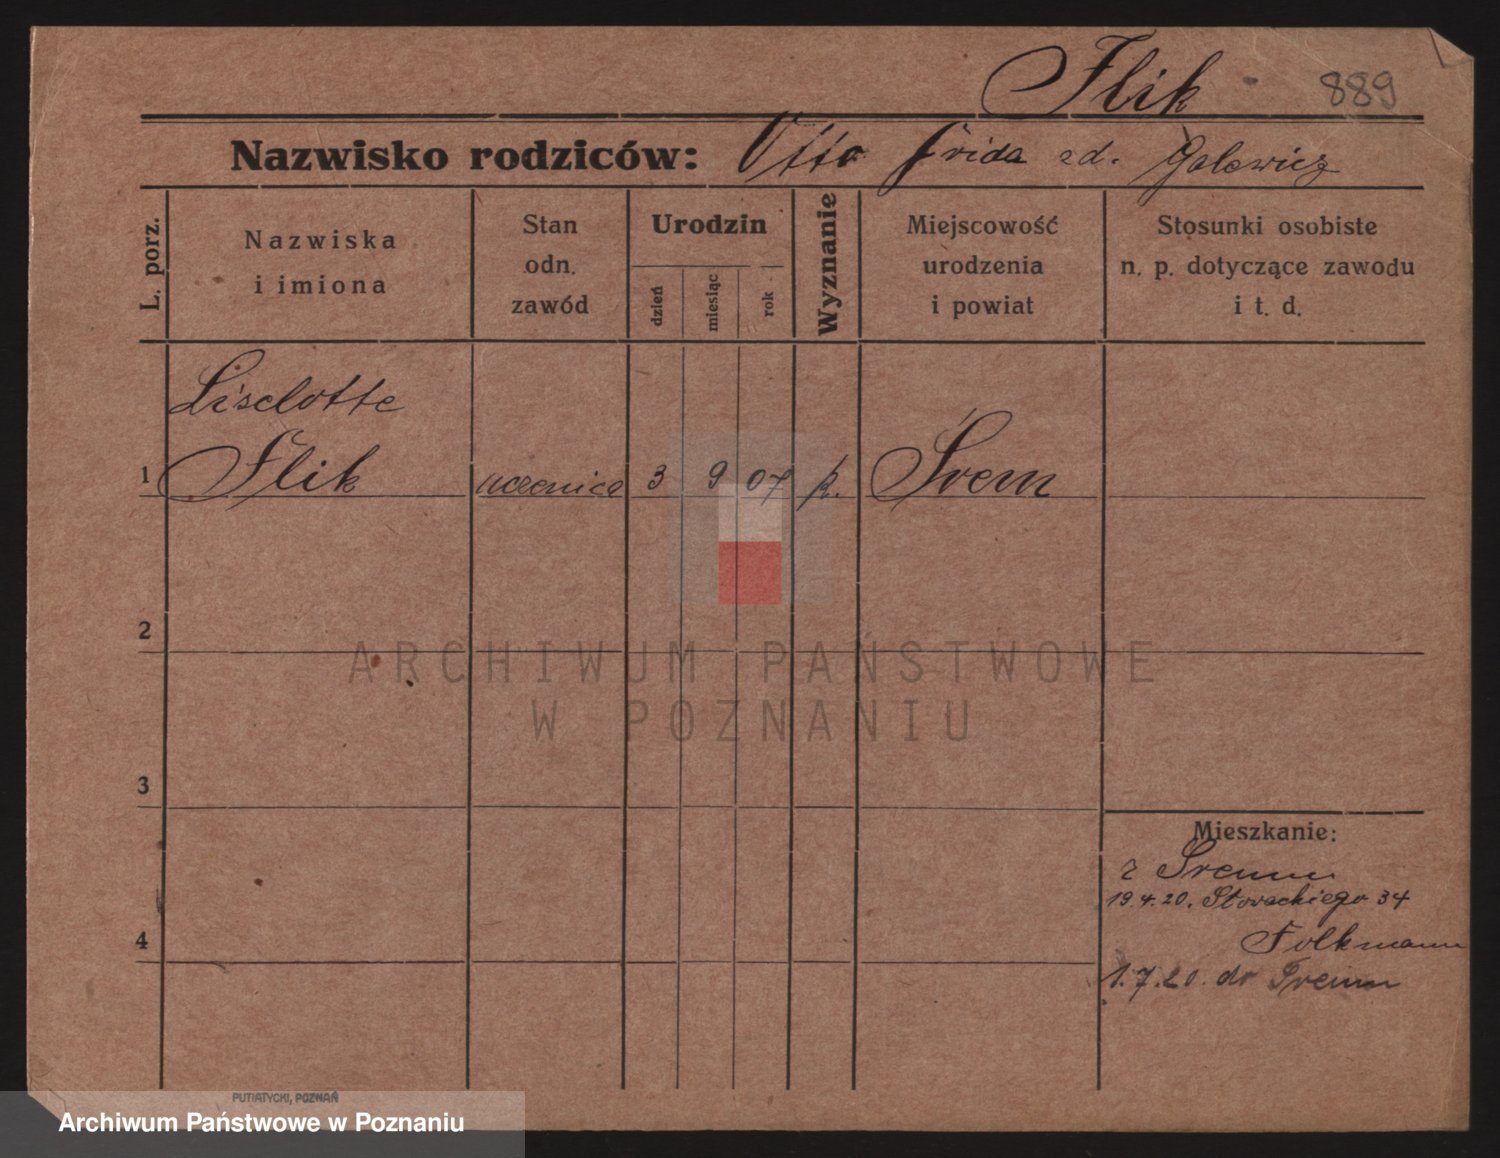 Flik 889
Nazwisko rodziców: Otto Frida zd. Galewicz
L. porz.
Nazwiska
i imiona
Stan
odn.
zawód
Urodzin
dzień
miesiąc
rok
Wyznanie
Miejscowość
urodzenia
i powiat
Stosunki osobiste
n. p. dotyczące zawodu
i t. d.
Liselotte
1 Flik uczenica 3 9 07 k. Śrem
2
ARCHIWUM PAŃSTWOWE
W POZNANIU
3
Mieszkanie:
z Śremu
19.4.20. Słowackiego 34
4 Folkmann
1.7.20. do Śremu
PUTIATYCKI, POZNAŃ
Archiwum Państwowe w Poznaniu